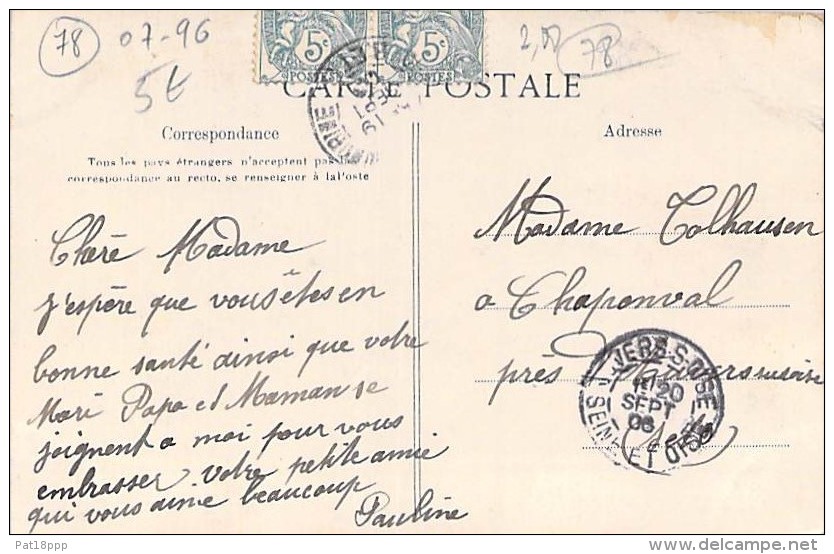 78
07-96
5€
2,00
78
5c
5c
POSTES
POSTES
CARTE POSTALE
Correspondance
Adresse
Tous les pays étrangers n'acceptent pas la
correspondance au recto, se renseigner à la Poste
Chère Madame
J'espère que vous êtes en
bonne santé ainsi que votre
Mari Papa et Maman se
joignent a moi pour vous
embrasser votre petite amie
qui vous aime beaucoup
Pauline
Madame Tolhausen
a Chaponval
près Auvers sur oise
UVERS-S-OISE
20
SEPT
06
SEINE ET OISE
Pat18ppp
www.delcampe.net